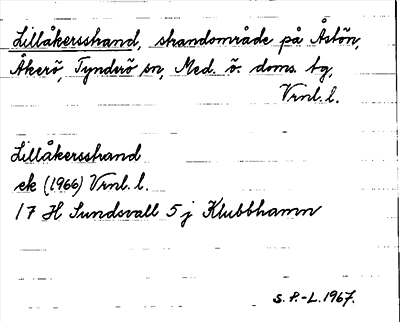 Lillåkersstrand, strandområde på Åstön,
Åkerö, Tynderö sn, Med. ö. doms. tg,
Vrnl. l.
Lillåkersstrand
ek (1966) Vrnl. l.
17 H Sundsvall 5 j Klubbhamn
S. P.-L. 1967.